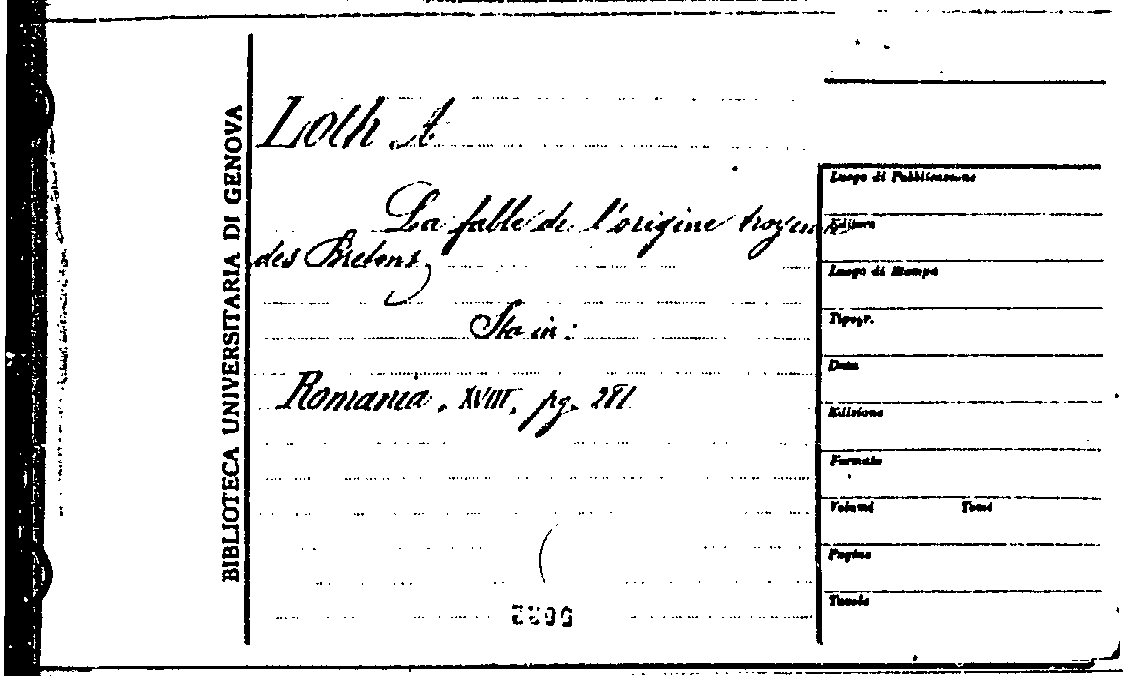 BIBLIOTECA UNIVERSITARIA DI GENOVA
Loth A
La fable de l'origine troyenne
des Bretons
Sta in:
Romania, XVIII, pg. 281
Luogo di Pubblicazione
Editore
Luogo di Stampa
Tipogr.
Data
Edizione
Formato
Volumi Tomi
Pagine
Tavole